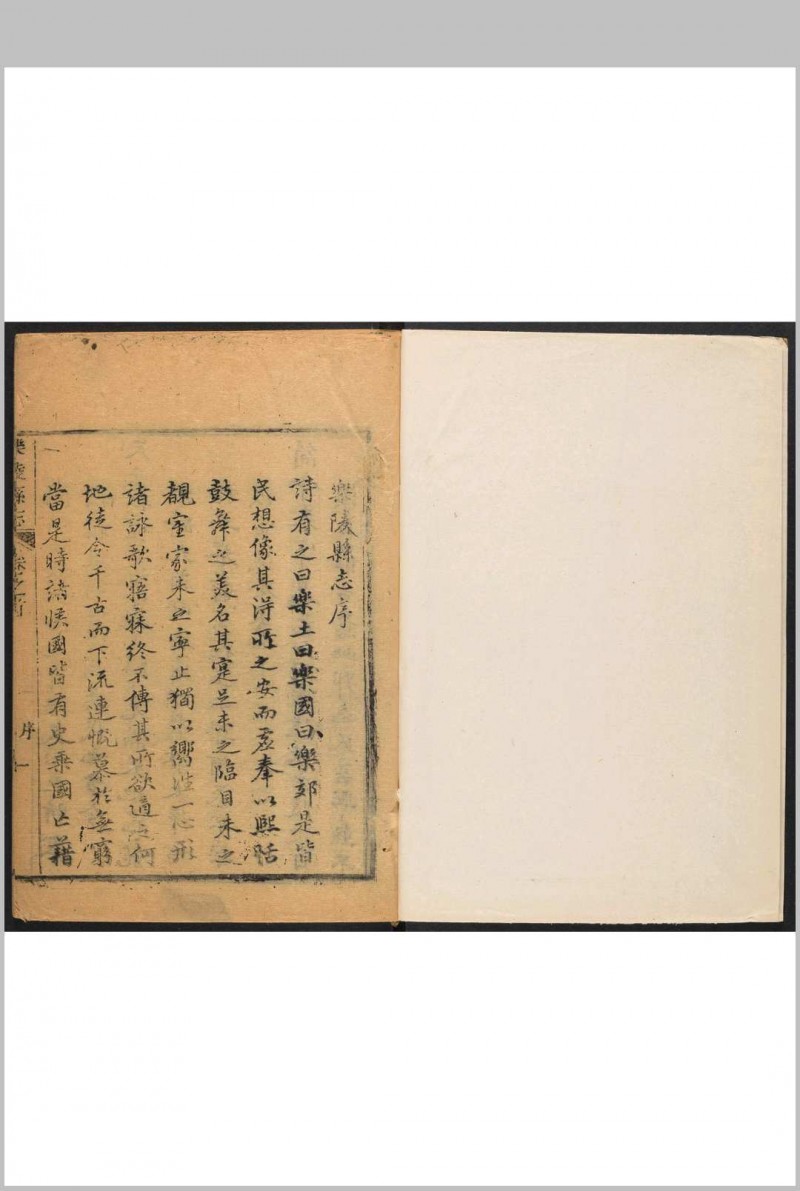 樂陵縣志序
詩有之曰樂土曰樂國曰樂郊是皆
民想像其淂所之安而虛奉以熙恬
鼓舞之美名其寔足未之臨目未之
覩室家未之寧止獨以嚮徃一心形
諸詠歌寤寐終不傳其所欲適之何
地徒令千古而下流連慨慕於無窮
當是時諸侯國皆有史乘國亡籍
樂陵縣志
序
一